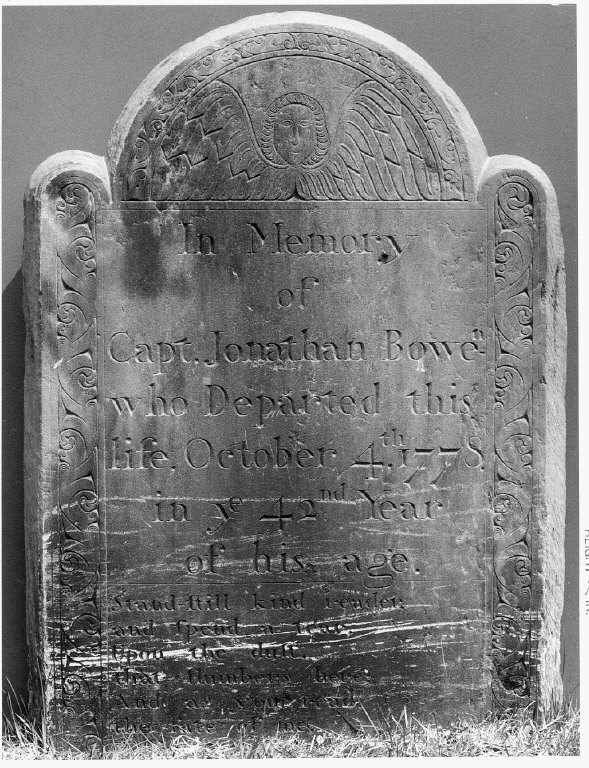 In Memory
of
Capt. Jonathan Bowen
who Departed this
life, October, 4th, 1778,
in ye 42nd Year
of his, age.
Stand ſtill kind reader;
and ſpend a tear,
Upon the duſt,
that ſlumbers here;
And as you read
the ſtate of me,